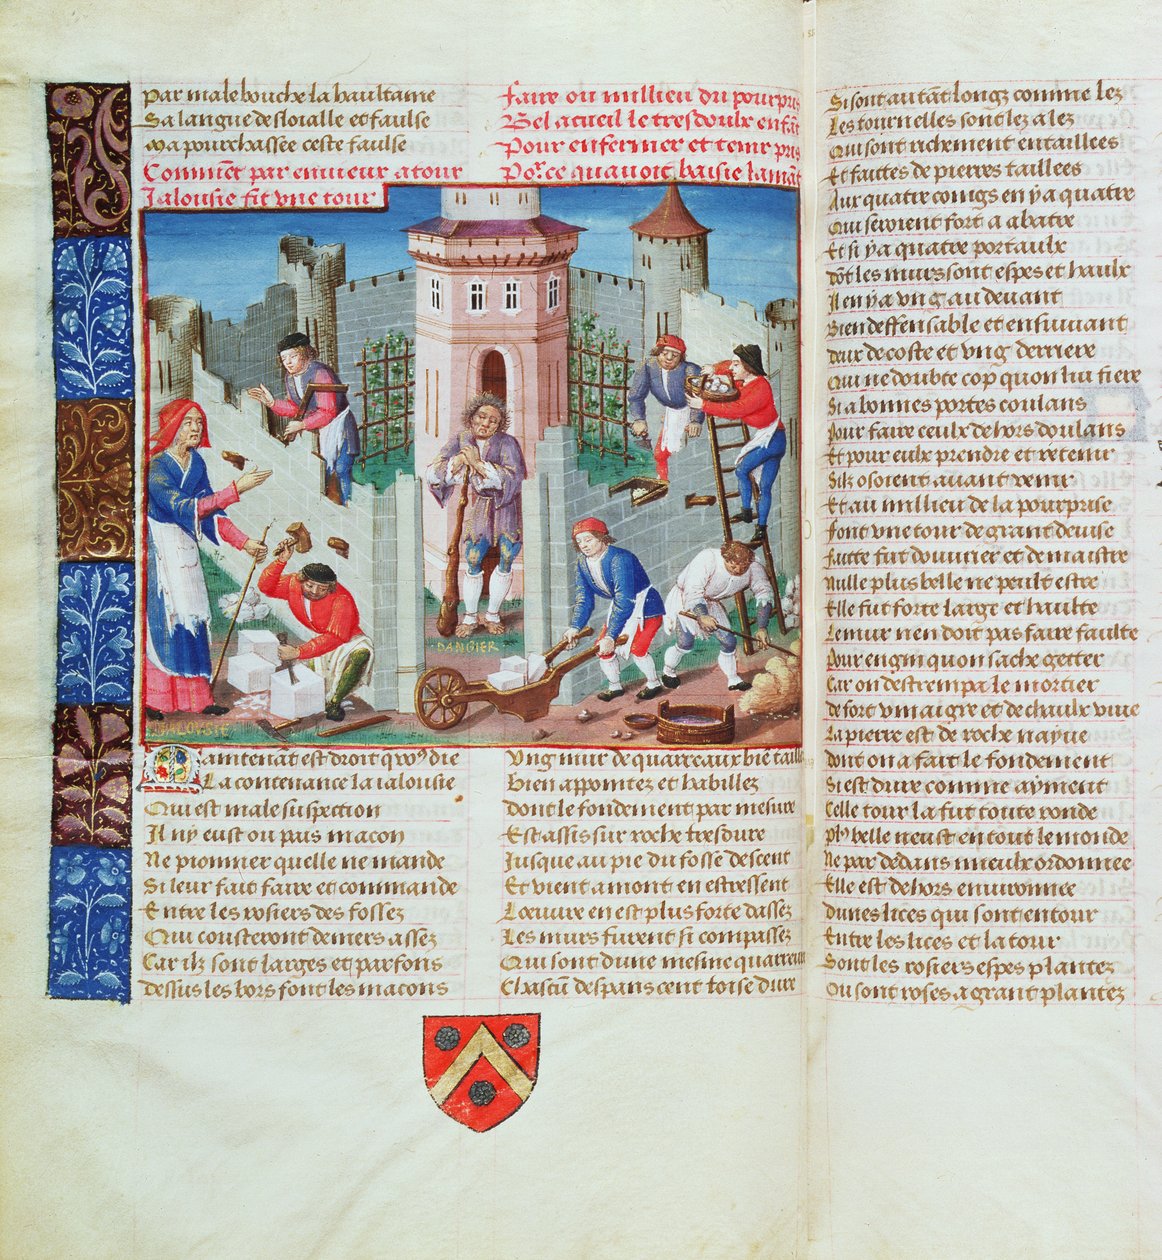 Par malebouche la haultaine
Sa langue desloialle et faulse
Ma pourchassee ceste faulse
Comment par envie ou atour
Jalousie fit une tour
Faire ou millieu du pourpris
Bel acueil le tresdoulx enfāt
Pour enfermer et tenir pris
Por ce qu avoit baisie lamāt
JALOUSIE
DANGIER
Maintenāt est droit q̄ vo9 die
La contenance la ialousie
Qui est male suspection
Il ny eust ou pais macon
Ne pionnier quelle ne mande
Si leur fait faire et commande
Entre les rosiers des fossez
Qui cousteront deniers assez
Car ilz sont larges et parfons
Dessus les bors font les macons
Ung mur de quarreaux biē taill
Bien appointez et habillez
Dont le fondement par mesure
Est assis sur roche tresdure
Jusque au pie du fosse descent
Et vient amont en estressent
Lœuvre en est plus forte dassez
Les murs furent si compassez
Qui sont dune mesme quarreure
Chascū des pans cent toise dure
Si sont autāt longz comme lez
Les tournelles sont lez a lez
Qui sont richement entaillees
Et faites de pierres taillees
Aux quatre coings en y a quatre
Qui seroient fort a abatre
Et si y a quatre portaulx
Dōt les murs sont espes et haulx
Il en y a ung au devant
Bien deffensable et ensuivant
Deux de coste et ung derriere
Qui ne doubte cop quon lui fiere
Si a bonnes portes coulans
Pour faire ceulx de hors doulans
Et pour eulx prendre et retenir
Silz osoient avant venir
Et au millieu de la pourprise
Font une tour de grant devise
Faitte fut douvrier et de maistre
Nulle plus belle ne peult estre
Elle fut forte large et haulte
Le mur nen doit pas faire faulte
Pour engin quon sache getter
Car on destrempa le mortier
De fort vin aigre et de chaulx vive
La pierre est de roche nayve
Dont on a fait le fondement
Si est dure comme ayment
Celle tour la fut toute ronde
Pl9 belle neust en tout le monde
Ne par dedans mieulx ordonnee
Elle est dehors environnee
Dunes lices qui sont entour
Entre les lices et la tour
Sont les rosiers espes plantez
Ou sont roses a grant plantez